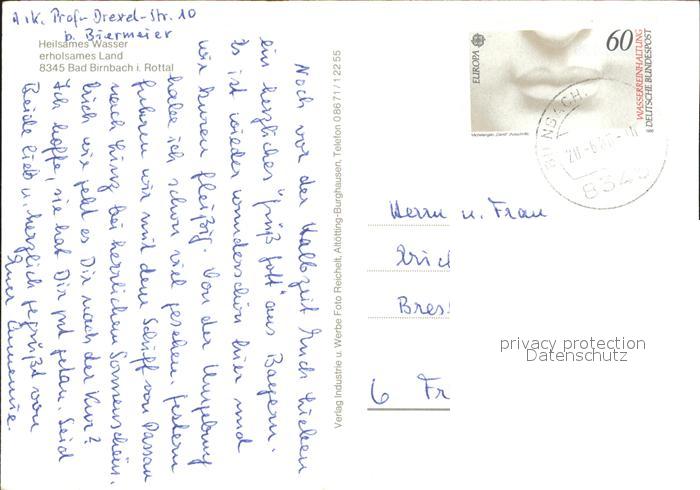 A.i.K. Prof. Drexel-Str. 10
b. Biermeier
Heilsames Wasser
erholsames Land
8345 Bad Birnbach i. Rottal
Noch vor der Halbzeit Euch Lieben
ein herzliches "grüß Gott" aus Bayern.
Es ist wieder wunderschön hier und
wir kuren fleißig. Von der Umgebung
habe ich schon viel gesehen. Gestern
fuhren wir mit dem Schiff von Passau
nach Linz bei herrlichem Sonnenschein.
wie geht es Dir nach der Kur?
Ich hoffe, sie hat Dir gut getan. Seid
Beide lieb u. herzlich gegrüßt von
Eurer Annemie.
Verlag Industrie u. Werbe Foto Reichelt, Altötting-Burghausen, Telefon 08671/12255
EUROPA
60
WASSERREINHALTUNG
DEUTSCHE BUNDESPOST
BIRNBACH,
8345
Herrn u. Frau
Erich
Bres
6 Fr
privacy protection
Datenschutz